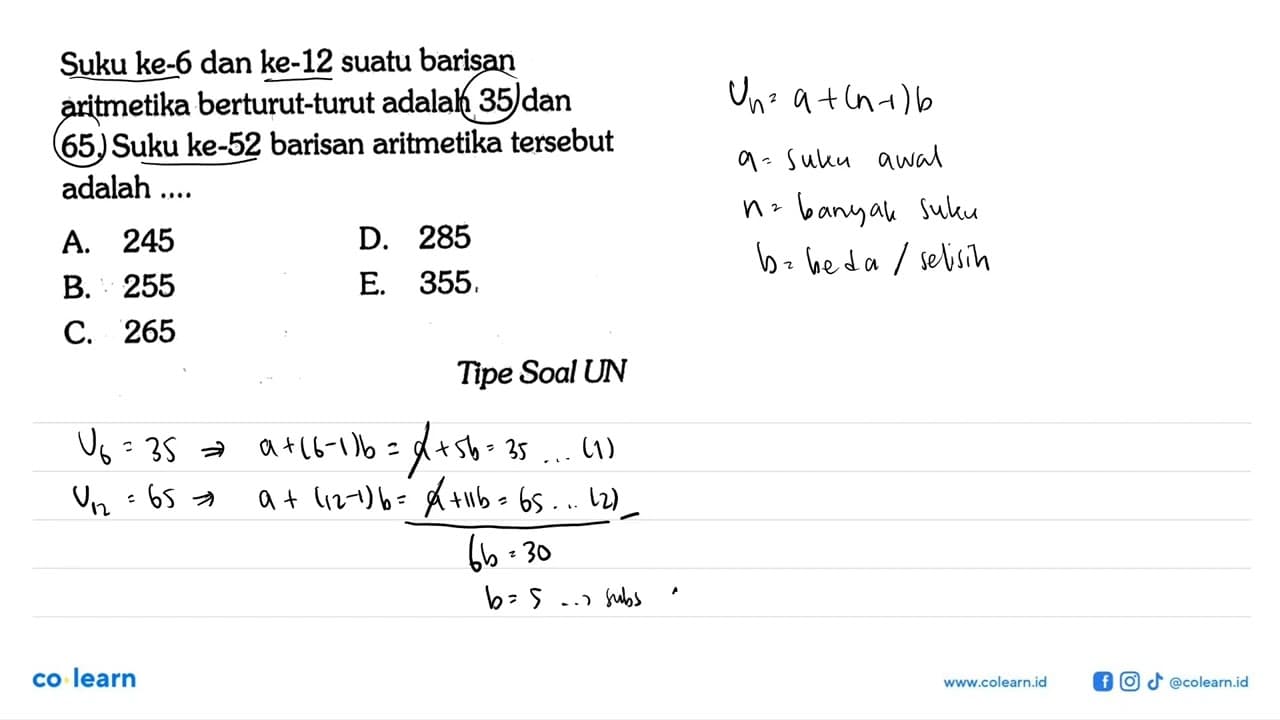 Suku ke-6 dan ke-12 suatu barisan
aritmetika berturut-turut adalah 35 dan
65. Suku ke-52 barisan aritmetika tersebut
adalah ....
A. 245
B. 255
C. 265
D. 285
E. 355
Tipe Soal UN
Un = a + (n-1)b
a = suku awal
n = banyak suku
b = beda / selisih
U6 = 35 ⇒ a+(6-1)b = a+5b = 35 ... (1)
U12 = 65 ⇒ a + (12-1)b = a+11b = 65 ... (2) -
6b = 30
b = 5 --> subs
co learn
www.colearn.id
@colearn.id